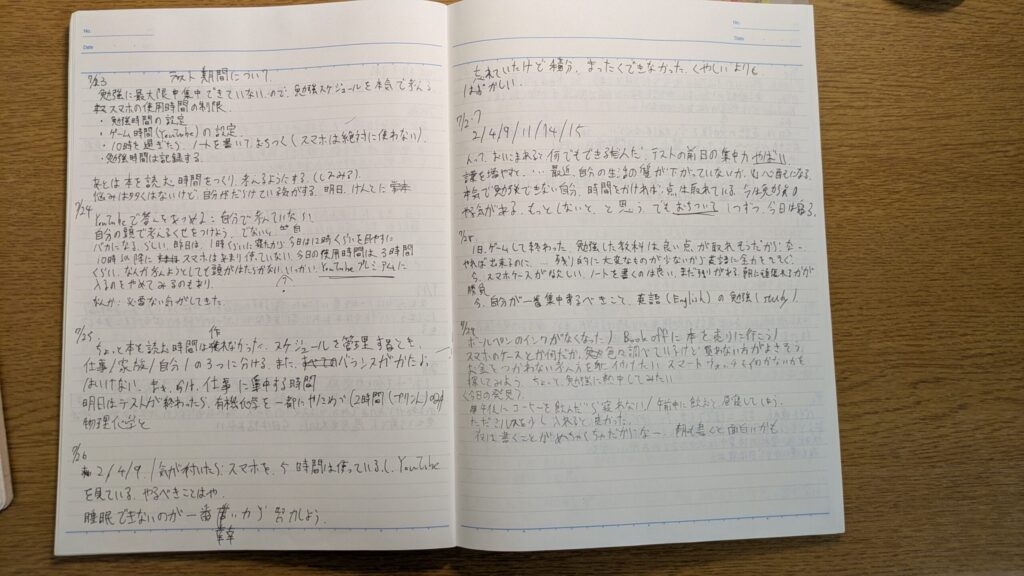 No.
Date
7/23 テスト期間について
勉強に最大限集中できていないので、勉強スケジュールを本気で考える。
スマホの使用時間の制限
・勉強時間の設定
・ゲーム時間(YouTube)の設定
・10時を過ぎたら、ノートを書いて、おちつく(スマホは絶対に使わない)
・勉強時間は記録する。
あとは本を読む時間をつくり、考えるようにする。
悩みは少くはないけど、自分がだらけている
7/24 YouTubeで答えをあつめる:自分で考えていない
自分の頭で考えるくせをつけよう。でないと
バカになる。らしい。昨日は、1時くらいに寝たから今日は12時くらいを目やすに
10時以降にスマホはあまり使っていない。今日の使用時間は、3時間
くらい。なんか考えようとしても頭がはたらかない。いっかい、YouTubeプレミアムに
入るのをやめてみるのもあり。
なんか必要ない気がしてきた。
7/25 作
ちょっと本を読む時間はなかった。スケジュールを管理するでも
仕事/家族/自分/の3つに分ける。また、バランスがかたよっ
はいけない。仕事に集中する時間
明日はテストが終わったら、有機化学を一部にやじめて(2時間(プリント)の
物理化学と
7/26
2/4/9/気が付いたらスマホを、5時間は使っているし、YouTube
を見ている。やるべきことはや
睡眠できないのが一番 から努力しよう。
No.
Date
忘れていたけど積分、まったくできなかった。くやしいよりも
はずかしい。
7/27
2/4/9/11/14/15
人って、おいこまれると何でもできる。テストの前日の集中力やばい。
最近、自分の生活の質が下がっていないか、心配になる。
本気で勉強できない自分、時間をかければ、点は取れている。今は勉強の
やる気がある。もっとしないと、と思う でもおちついて 1つずつ、今日は寝る。
7/28
1日、ゲームして終わった。勉強した教科は良い点が取れそうだからなー
やれば出来るのに... 残り的に大変なものが少ないから英語に全力をそそぐ。
今、スマホケースがなしい。ノートを書くのは良い、まだ残りがある。朝に
勝負
今、自分が一番集中するべきこと、英語(English)の勉強(study)
7/29
ボールペンのインクがなくなった!/Book offに本を売りに行こう!
スマホのケースとか何だか、色々調べているけど買わない方がよさそう。
お金をつかわない考え方を身に付けたい。スマートウォッチ
探してみよう。ちょっと、勉強に熱中してみたい
(今日の発見)
コーヒーを飲んだら寝れない/午前中に飲むと
ただミルクを少し入れると良かった。
夜は書くことがめちゃくちゃだからなー 朝も書くと面白いかも